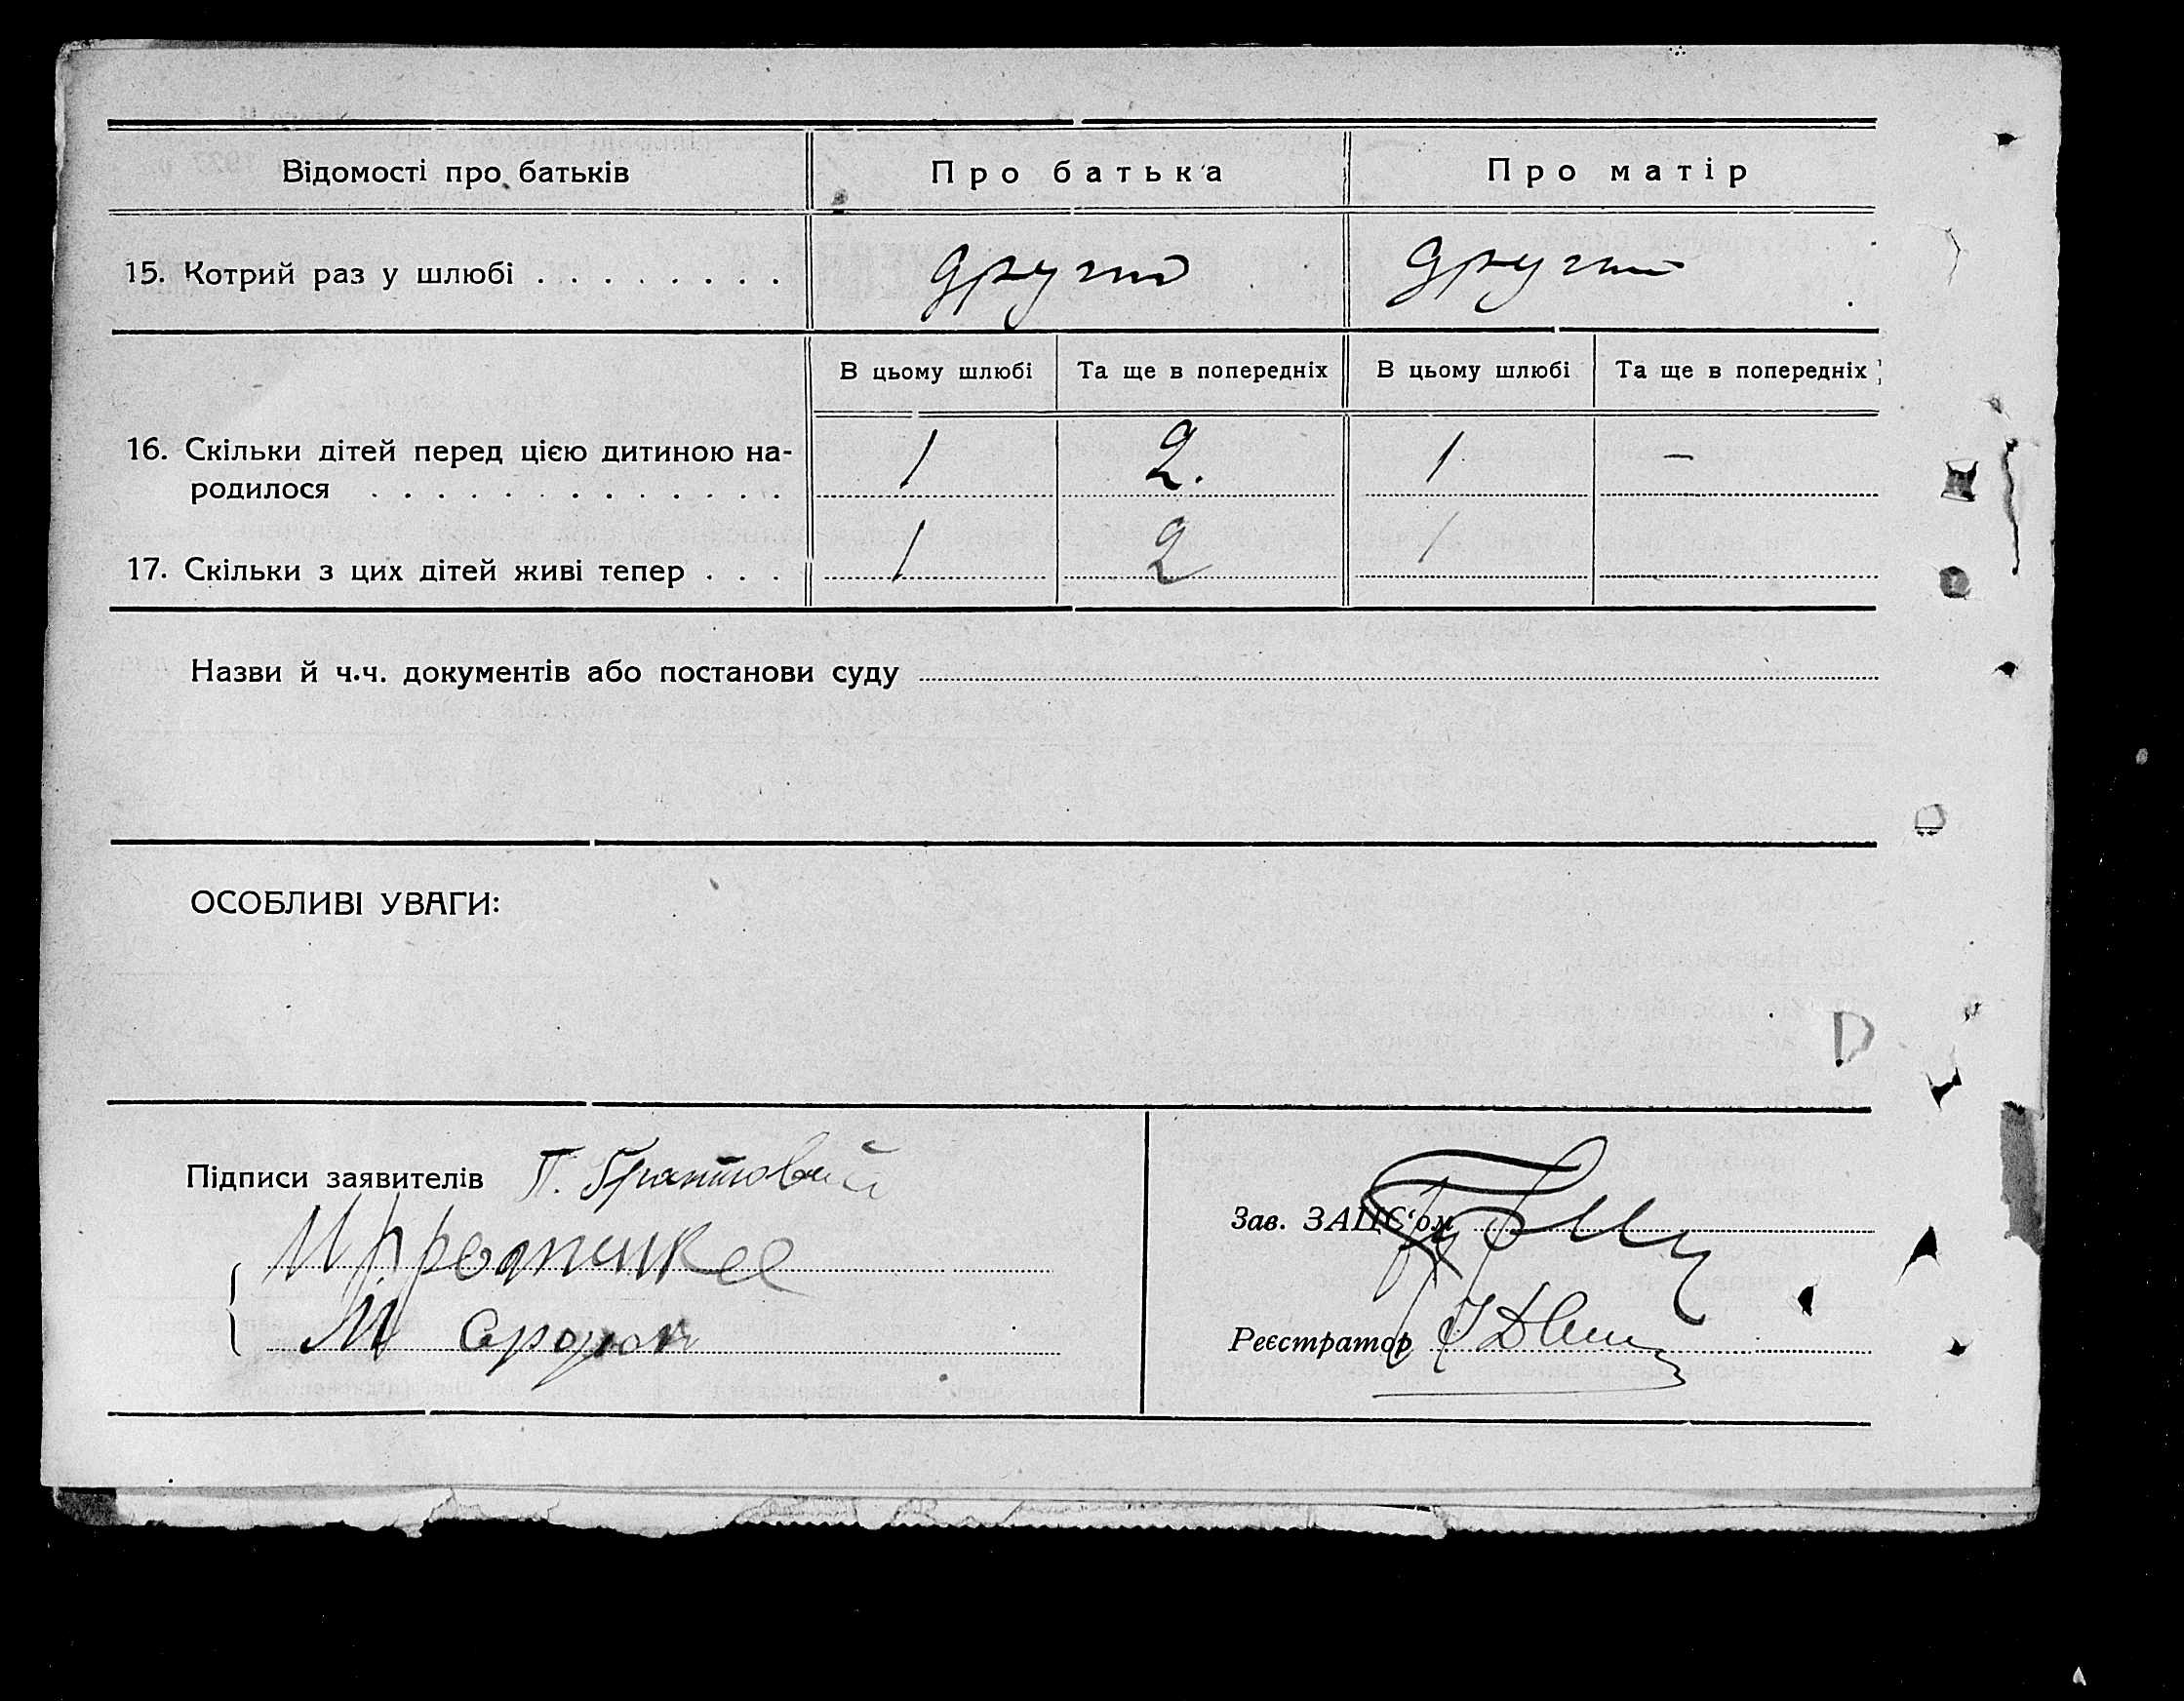 Відомості про батьків
Про батька
Про матір
15. Котрий раз у шлюбі . . . . . . . .
другий
другий
В цьому шлюбі
Та ще в попередніх
В цьому шлюбі
Та ще в попередніх
16. Скільки дітей перед цією дитиною на-
родилося . . . . . . . . . . . . .
1
2.
1
—
17. Скільки з цих дітей живі тепер . . .
1
2
1
Назви й ч.ч. документів або постанови суду
ОСОБЛИВІ УВАГИ:
Підписи заявителів П.
М
Зав. ЗАЦС'ом
Реєстратор